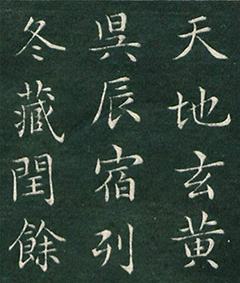 天地玄黄
昃辰宿列
冬藏閏餘